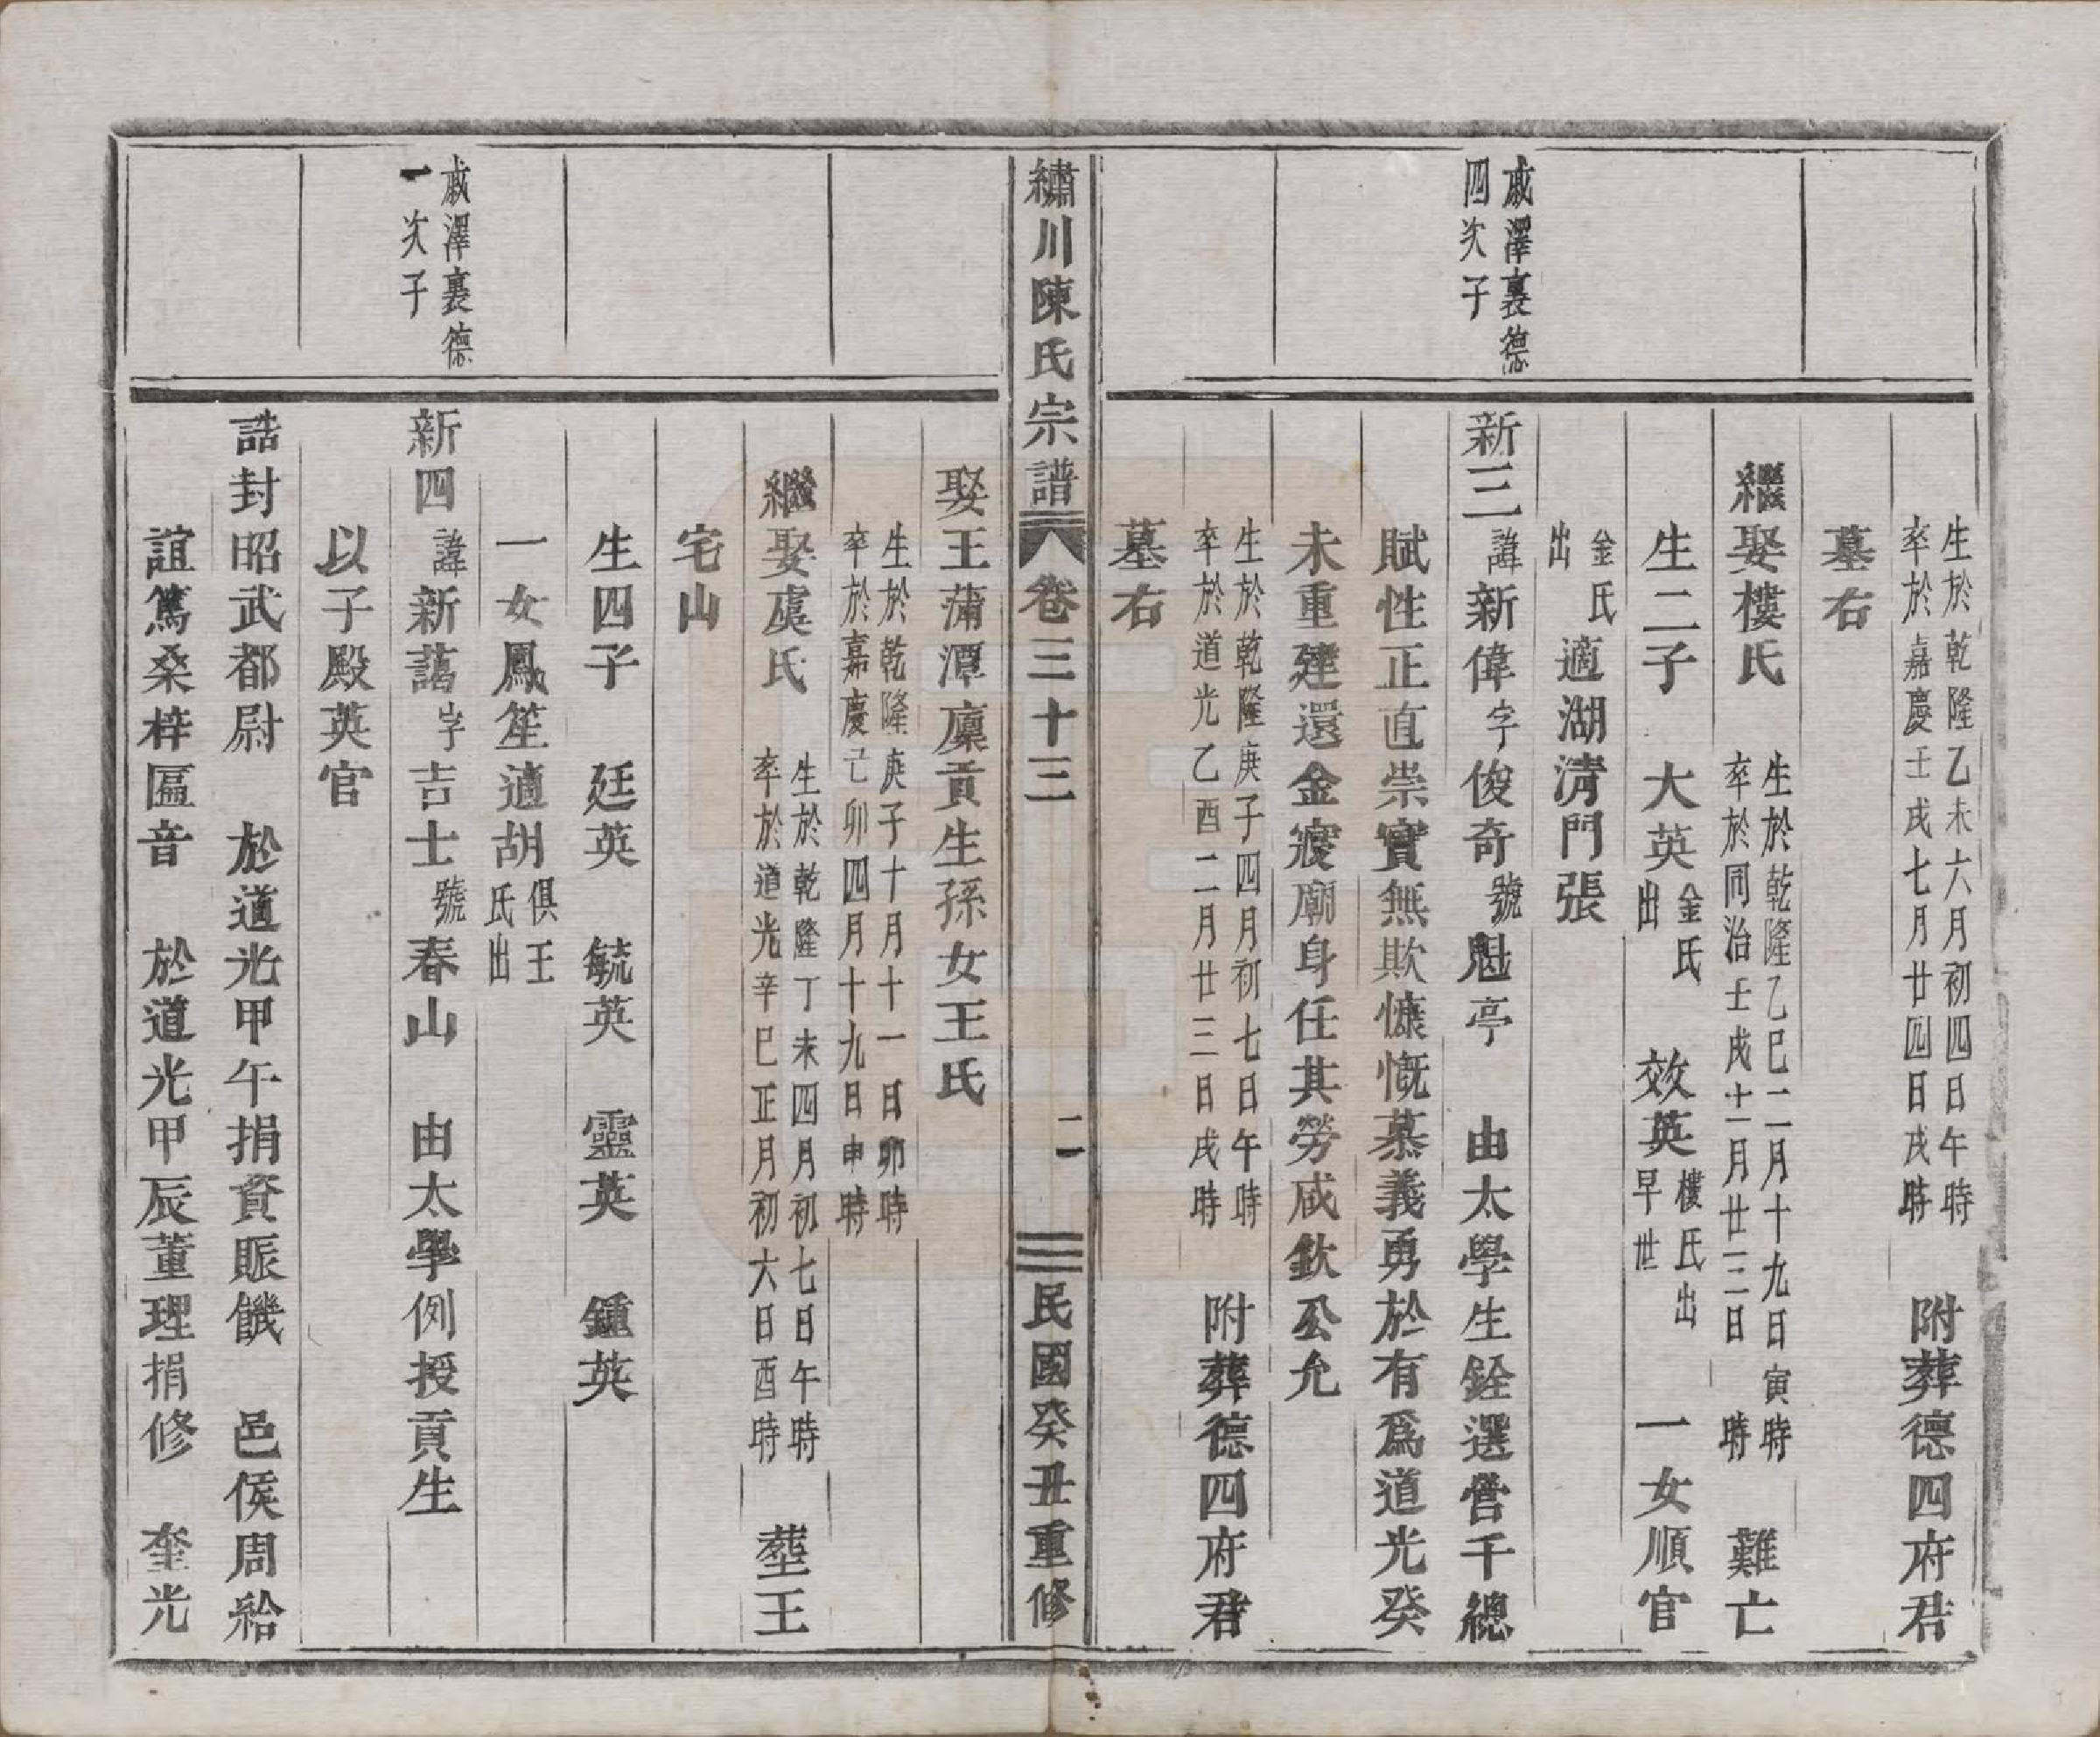 生於乾隆乙未六月初四日午時
卒於嘉慶壬戌七月廿四日戌時
附葬德四府君
墓右
繼娶樓氏
生於乾隆乙巳二月十九日寅時
卒於同治壬戌十一月廿三日 時
難亡
生二子 大英 金氏出 效英 樓氏出早世 一女順官
金氏出 適湖淸門張
戚澤裏德四次子
新三 諱新偉 字俊奇 號魁亭 由太學生銓選營千總
賦性正直崇實無欺慷慨慕義勇於有爲道光癸
未重建還金寢廟身任其勞咸欽公允
生於乾隆庚子四月初七日午時
卒於道光乙酉二月廿三日戌時
附葬德四府君
墓右
繡川陳氏宗譜 卷三十三 二 民國癸丑重修
娶王蒲潭廩貢生孫女王氏
生於乾隆庚子十月十一日卯時
卒於嘉慶己卯四月十九日申時
繼娶虞氏
生於乾隆丁未四月初七日午時
卒於道光辛巳正月初六日酉時
塟王
宅山
生四子 廷英 毓英 靈英 鍾英
一女鳳笙適胡 俱王氏出
戚澤裏德一次子
新四 諱新藹 字吉士 號春山 由太學例授貢生
以子殿英官
誥封昭武都尉 於道光甲午捐資賑饑 邑侯周給
誼篤桑梓匾音 於道光甲辰董理捐修 奎光